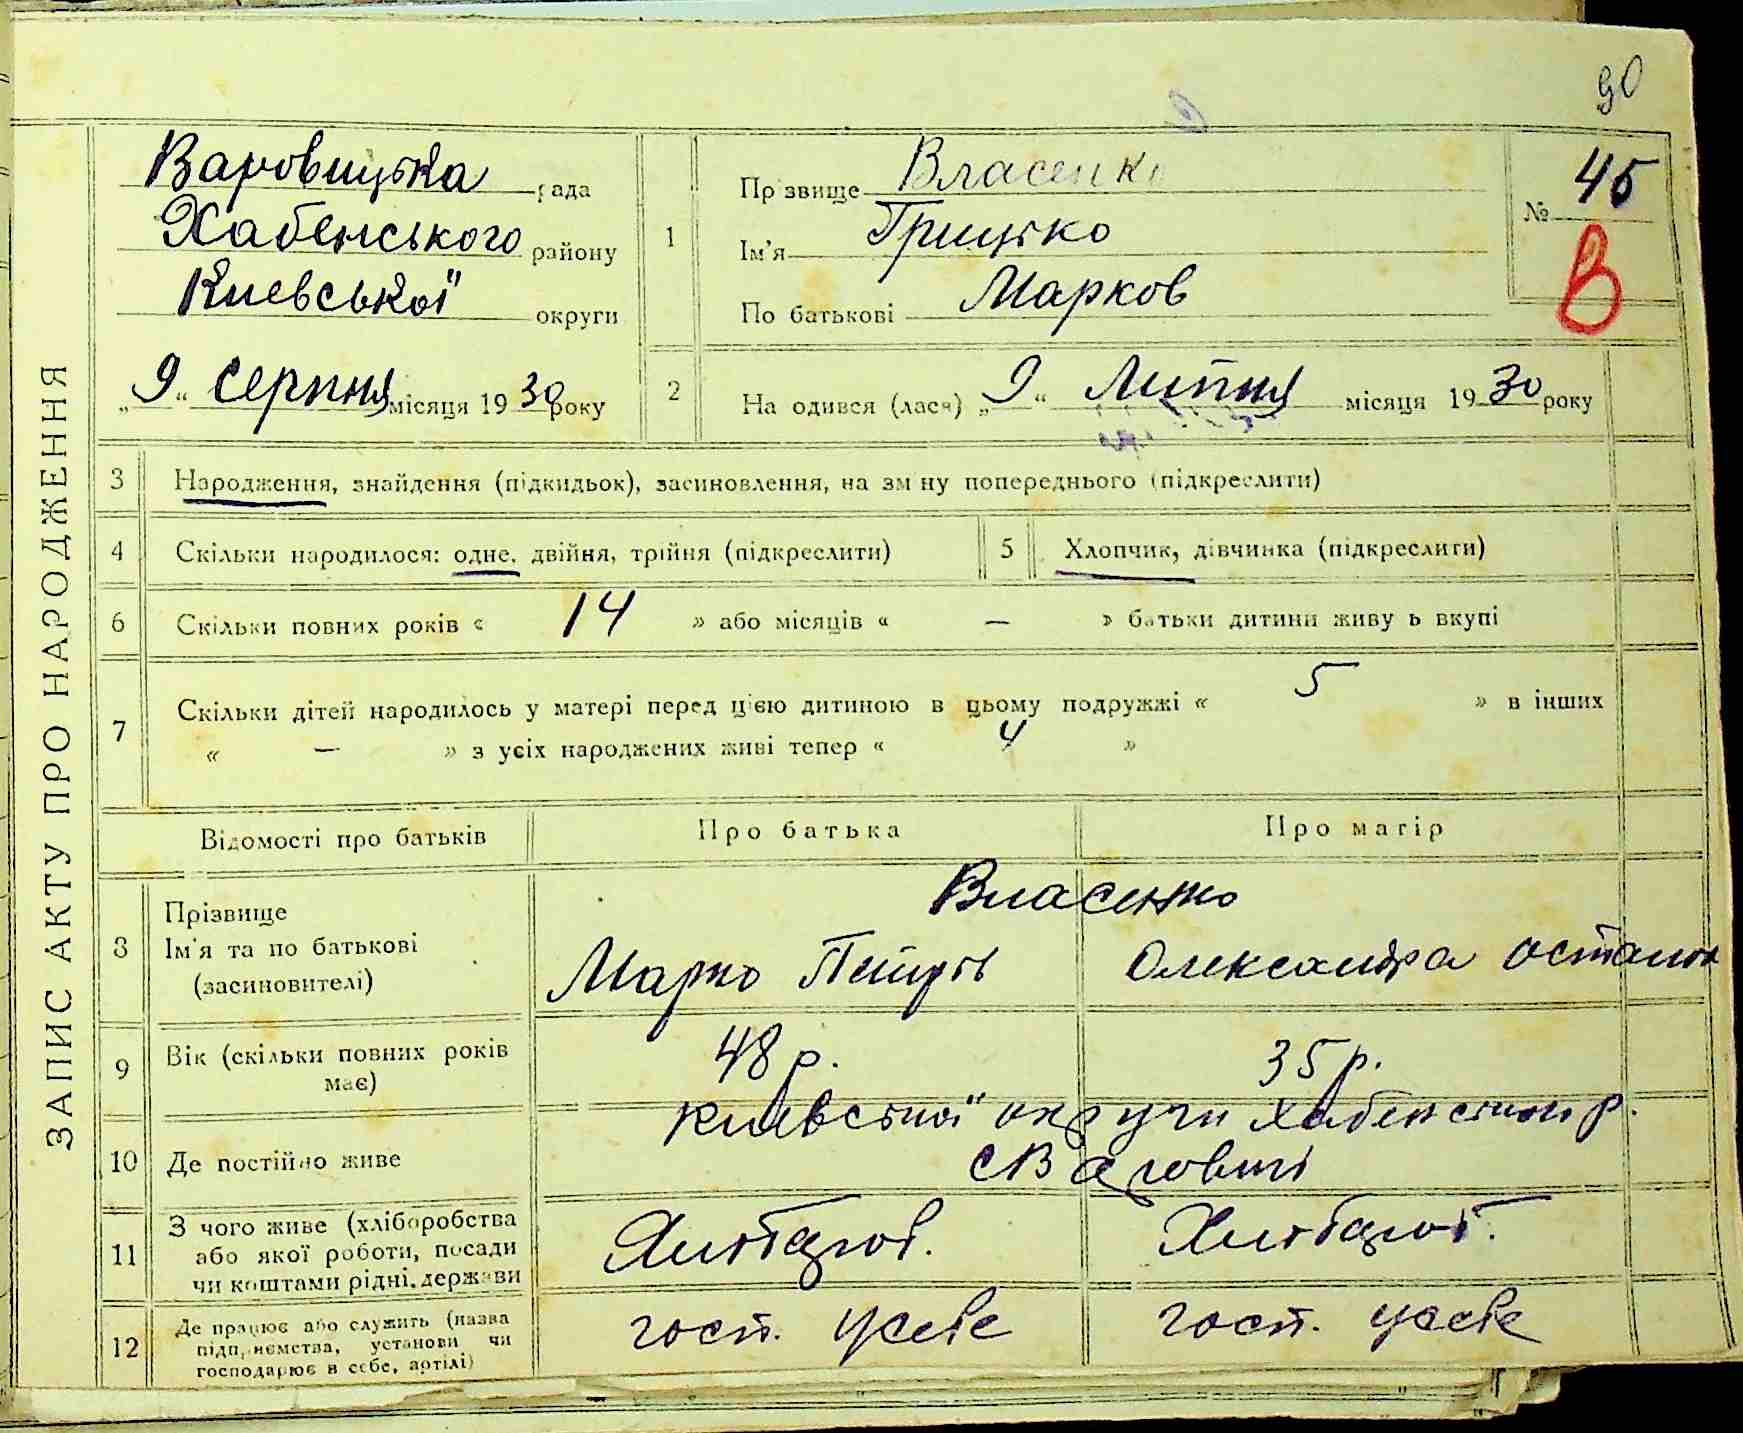 90
ЗАПИС АКТУ ПРО НАРОДЖЕННЯ
Варовицька рада
Хабенського району
Киевської округи
„9“ серпня місяця 1930 року
1
Прізвище Власенко
Ім'я Грицько
По батькові Марков
№ 45
В
2
На одився (лася) „9“ Липня місяця 1930 року
3 Народження, знайдення (підкидьок), засиновлення, на зміну попереднього (підкреслити)
4 Скільки народилося: одне, двійня, трійня (підкреслити)
5 Хлопчик, дівчинка (підкреслити)
6 Скільки повних років « 14 » або місяців « — » батьки дитини живуть вкупі
7 Скільки дітей народилось у матері перед цією дитиною в цьому подружжі « 5 » в інших
« — » з усіх народжених живі тепер « 4 »
Відомості про батьків
Про батька
Про матір
8 Прізвище
Ім'я та по батькові
(засиновителі)
Власенко
Марко Петров
Олександра
9 Вік (скільки повних років
має)
48 р.
35 р.
10 Де постійно живе
Киевської округи Хабенського р.
с Варовичі
11 З чого живе (хліборобства
або якої роботи, посади
чи коштами рідні, держави
Хлібороб.
Хлібороб.
12 Де працює або служить (назва
підприємства, установи чи
господарює в себе, артілі)
госп. усебе
госп. усебе